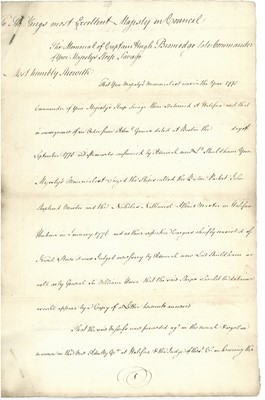 To The Kings most Excellent Majesty in Council
The Memorial of Captain Hugh Bromedge late Commander
of Your Majestys Sloop Savage
Most humbly Sheweth
That Your Majestys Memorialist was in the Year 1775
Commander of Your Majestys Sloop Savage then Stationed at Halifax and that
in consequence of an Order from Adml Graves dated at Boston the day of
September 1775 and afterwards confirmed by Admiral now Ld Shuldham Your
Majestys Memorialist Seized the Ships called the Dutton Packet John
Shepherd Master and the Nicholas Nathaniel Atkins Master in Halifax
Harbour in January 1776 and as their respective Cargoes chiefly consisted of
Naval Stores it was Judged necessary by Admiral now Lord Shuldham as
well as by General Sir William Howe that the said Ships should be detained
would appear by a Copy of a Letter hereunto annexed
That the said Vessels were proceeded agt in the usual &
manner in the Vice Admlty Ct at Halifax & the Judge of the sd Ct on hearing the